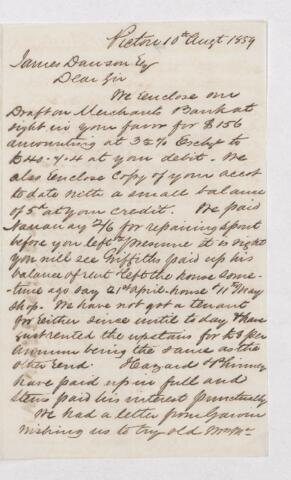 Pictou 10th Augt 1859
James Dawson Esq
Dear Sir
We enclose our
Draft on Merchants Bank at
sight in your favor for $156
amounting at 3½% Exchg to
£40.7.4 at your debit. We
also enclose copy of your acct
to date with a small balance
of 5d at your credit. We paid
January 2/6 for repairing spout
before you left I presume it is right
you will see Griffiths paid up his
balance of rent left the house some-
time ago say 21st april - house 11th May
shop. We have not got a tenant
for either since until to day I have
just rented the upstairs for £8 per
Annum being the same as the
other End. Hazard &
have paid up in full and
paid his interest punctually
We had a letter from
wishing us to try old Mrs